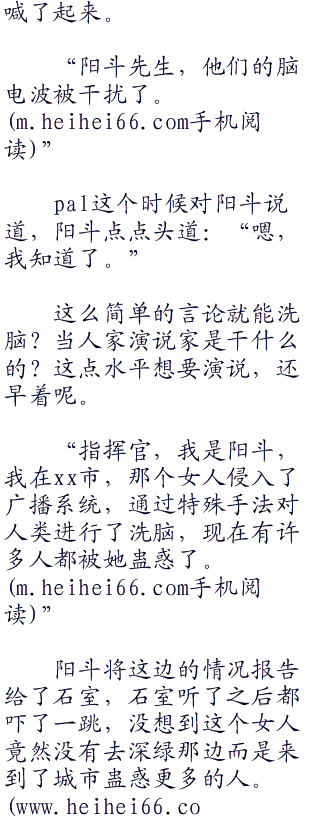 喊了起来。
“阳斗先生，他们的脑
电波被干扰了。
(m.heihei66.com手机阅
读)”
pal这个时候对阳斗说
道，阳斗点点头道：“嗯，
我知道了。”
这么简单的言论就能洗
脑？当人家演说家是干什么
的？这点水平想要演说，还
早着呢。
“指挥官，我是阳斗，
我在xx市，那个女人侵入了
广播系统，通过特殊手法对
人类进行了洗脑，现在有许
多人都被她蛊惑了。
(m.heihei66.com手机阅
读)”
阳斗将这边的情况报告
给了石室，石室听了之后都
吓了一跳，没想到这个女人
竟然没有去深绿那边而是来
到了城市蛊惑更多的人。
(www.heihei66.co